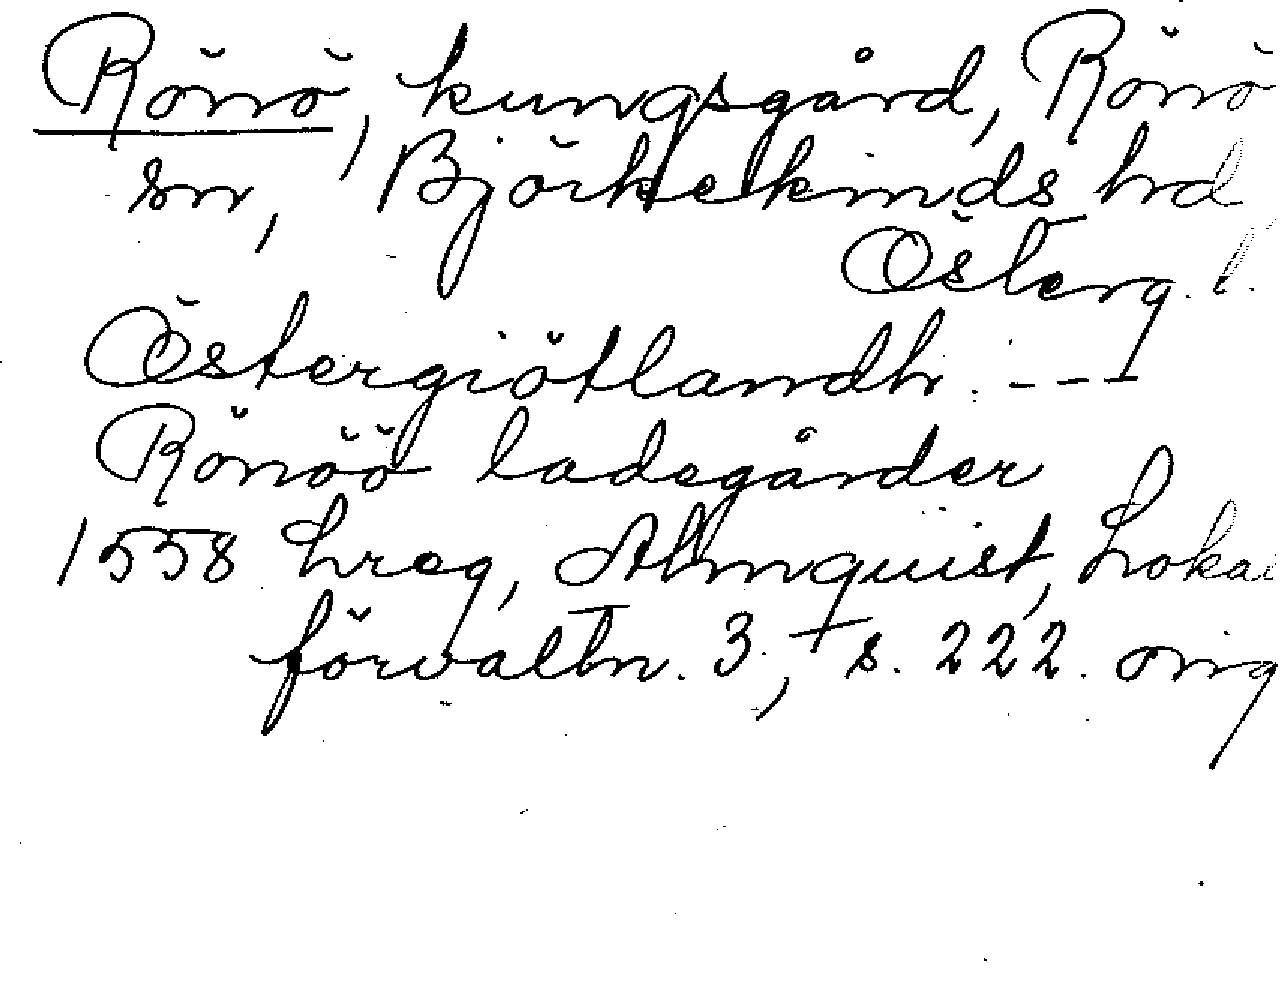 Rönö, kungsgård, Rönö
sn, Björkekinds hd
Österg. l.
Östergiötlandh. ---
Rönöö ladegårder
1558 hreg, Almquist, Loka
förvaltn. 3, s. 222. orig